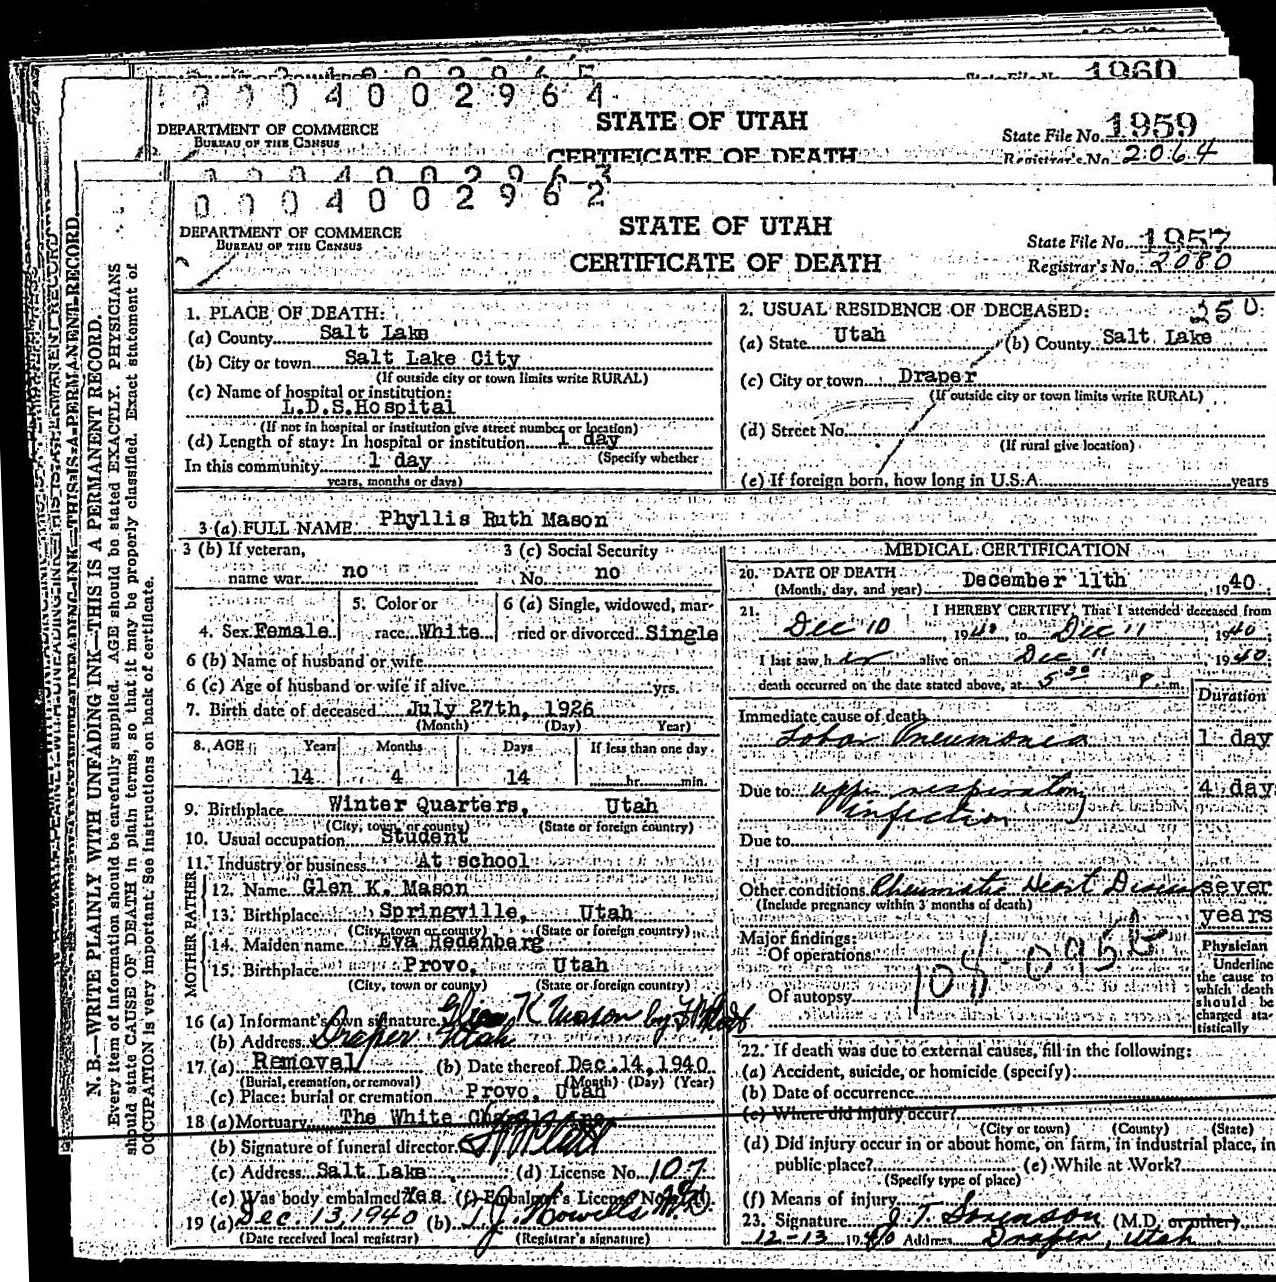 1960
0 0 0 4 0 0 2 9 6 4
DEPARTMENT OF COMMERCE
BUREAU OF THE CENSUS
STATE OF UTAH
CERTIFICATE OF DEATH
State File No. 1959
Registrar's No. 2064
0 0 0 4 0 0 2 9 6 3
0 0 0 4 0 0 2 9 6 2
DEPARTMENT OF COMMERCE
BUREAU OF THE CENSUS
STATE OF UTAH
CERTIFICATE OF DEATH
State File No. 1957
Registrar's No. 2080
N. B.—WRITE PLAINLY WITH UNFADING INK—THIS IS A PERMANENT RECORD.
Every item of information should be carefully supplied. AGE should be stated EXACTLY. PHYSICIANS
should state CAUSE OF DEATH in plain terms, so that it may be properly classified. Exact statement of
OCCUPATION is very important. See instructions on back of certificate.
1. PLACE OF DEATH:
(a) County Salt Lake
(b) City or town Salt Lake City
(If outside city or town limits write RURAL)
(c) Name of hospital or institution:
L.D.S.Hospital
(If not in hospital or institution give street number or location)
(d) Length of stay: In hospital or institution 1 day
(Specify whether
In this community 1 day
years, months or days)
2. USUAL RESIDENCE OF DECEASED: 250
(a) State Utah (b) County Salt Lake
(c) City or town Draper
(If outside city or town limits write RURAL)
(d) Street No.
(If rural give location)
(e) If foreign born, how long in U.S.A. years
3 (a) FULL NAME Phyllis Ruth Mason
3 (b) If veteran, name war no
3 (c) Social Security No. no
4. Sex Female
5. Color or race White
6 (a) Single, widowed, married or divorced Single
6 (b) Name of husband or wife
6 (c) Age of husband or wife if alive yrs.
7. Birth date of deceased July 27th, 1926
(Month) (Day) Year)
8. AGE Years Months Days If less than one day
14 4 14 hr. min.
9. Birthplace Winter Quarters, Utah
(City, town, or county) (State or foreign country)
10. Usual occupation Student
11. Industry or business At school
FATHER
12. Name Glen K. Mason
13. Birthplace Springville, Utah
(City, town or county) (State or foreign country)
MOTHER
14. Maiden name Eva Hedenberg
15. Birthplace Provo, Utah
(City, town or county) (State or foreign country)
16 (a) Informant's own signature Glen K Mason by
(b) Address Draper Utah
17 (a) Removal (b) Date thereof Dec.14,1940
(Burial, cremation, or removal) (Month) (Day) (Year)
(c) Place: burial or cremation Provo, Utah
18 (a) Mortuary The White
(b) Signature of funeral director
(c) Address Salt Lake (d) License No. 107
(e) Was body embalmed? Yes (f) Embalmer's License No.
19 (a) Dec. 13, 1940 (b) Howells
(Date received local registrar) (Registrar's signature)
MEDICAL CERTIFICATION
20. DATE OF DEATH December 11th, 1940.
(Month, day, and year)
21. I HEREBY CERTIFY, That I attended deceased from
Dec 10, 1940 to Dec 11, 1940
I last saw her alive on Dec 11, 1940
death occurred on the date stated above, at 5 30 P. m.
Duration
Immediate cause of death
Lobar Pneumonia 1 day
Due to upper respiratory 4 day
infection
Due to
Other conditions Rheumatic Heart Disease sever
years
(Include pregnancy within 3 months of death)
Major findings:
Of operations
Of autopsy
108
Physician
Underline
the cause to
which death
should be
charged sta-
tistically
22. If death was due to external causes, fill in the following:
(a) Accident, suicide, or homicide (specify)
(b) Date of occurrence
(c) Where did injury occur?
(City or town) (County) (State)
(d) Did injury occur in or about home, on farm, in industrial place, in
public place? (e) While at Work?
(Specify type of place)
(f) Means of injury
23. Signature J. T. Sorenson (M.D. or other)
12-13 1940 Address Draper, Utah